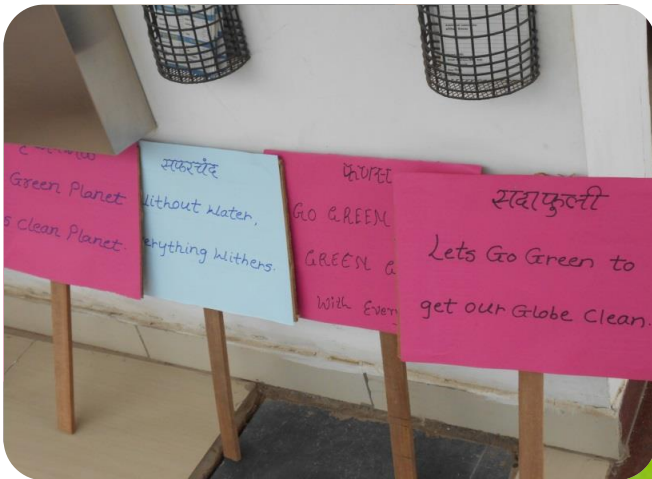 Green Planet
s Clean Planet.
सफरचंद
Without Water,
erything Withers.
GO GREEN
GREEN
With Ever
सदाफुली
Lets Go Green to
get our Globe Clean.